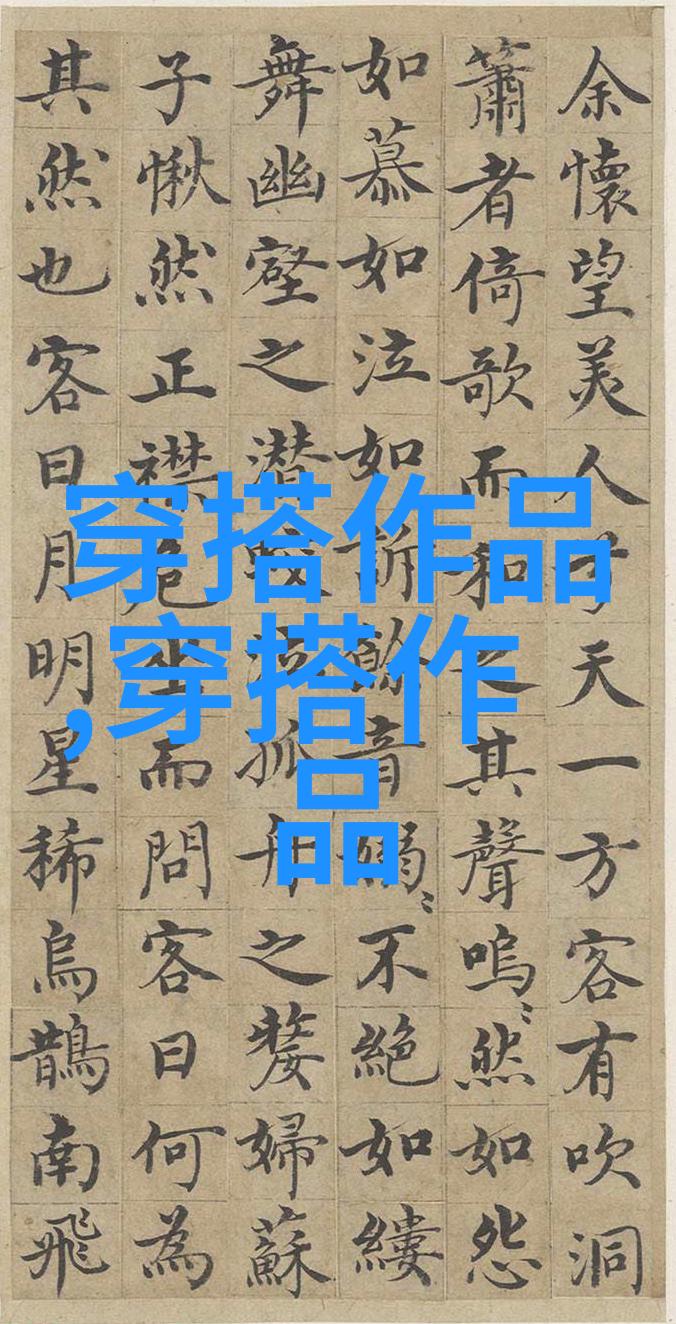 余懷望美人兮天一方客有吹洞
簫者倚歌而和之其聲嗚〻然如怨
如慕如泣如訴餘音嫋〻不絕如縷
舞幽壑之潛蛟泣孤舟之嫠婦蘇
子愀然正襟危坐而問客曰何為
其然也客曰月明星稀烏鵲南飛
穿搭作品
,穿搭作
品